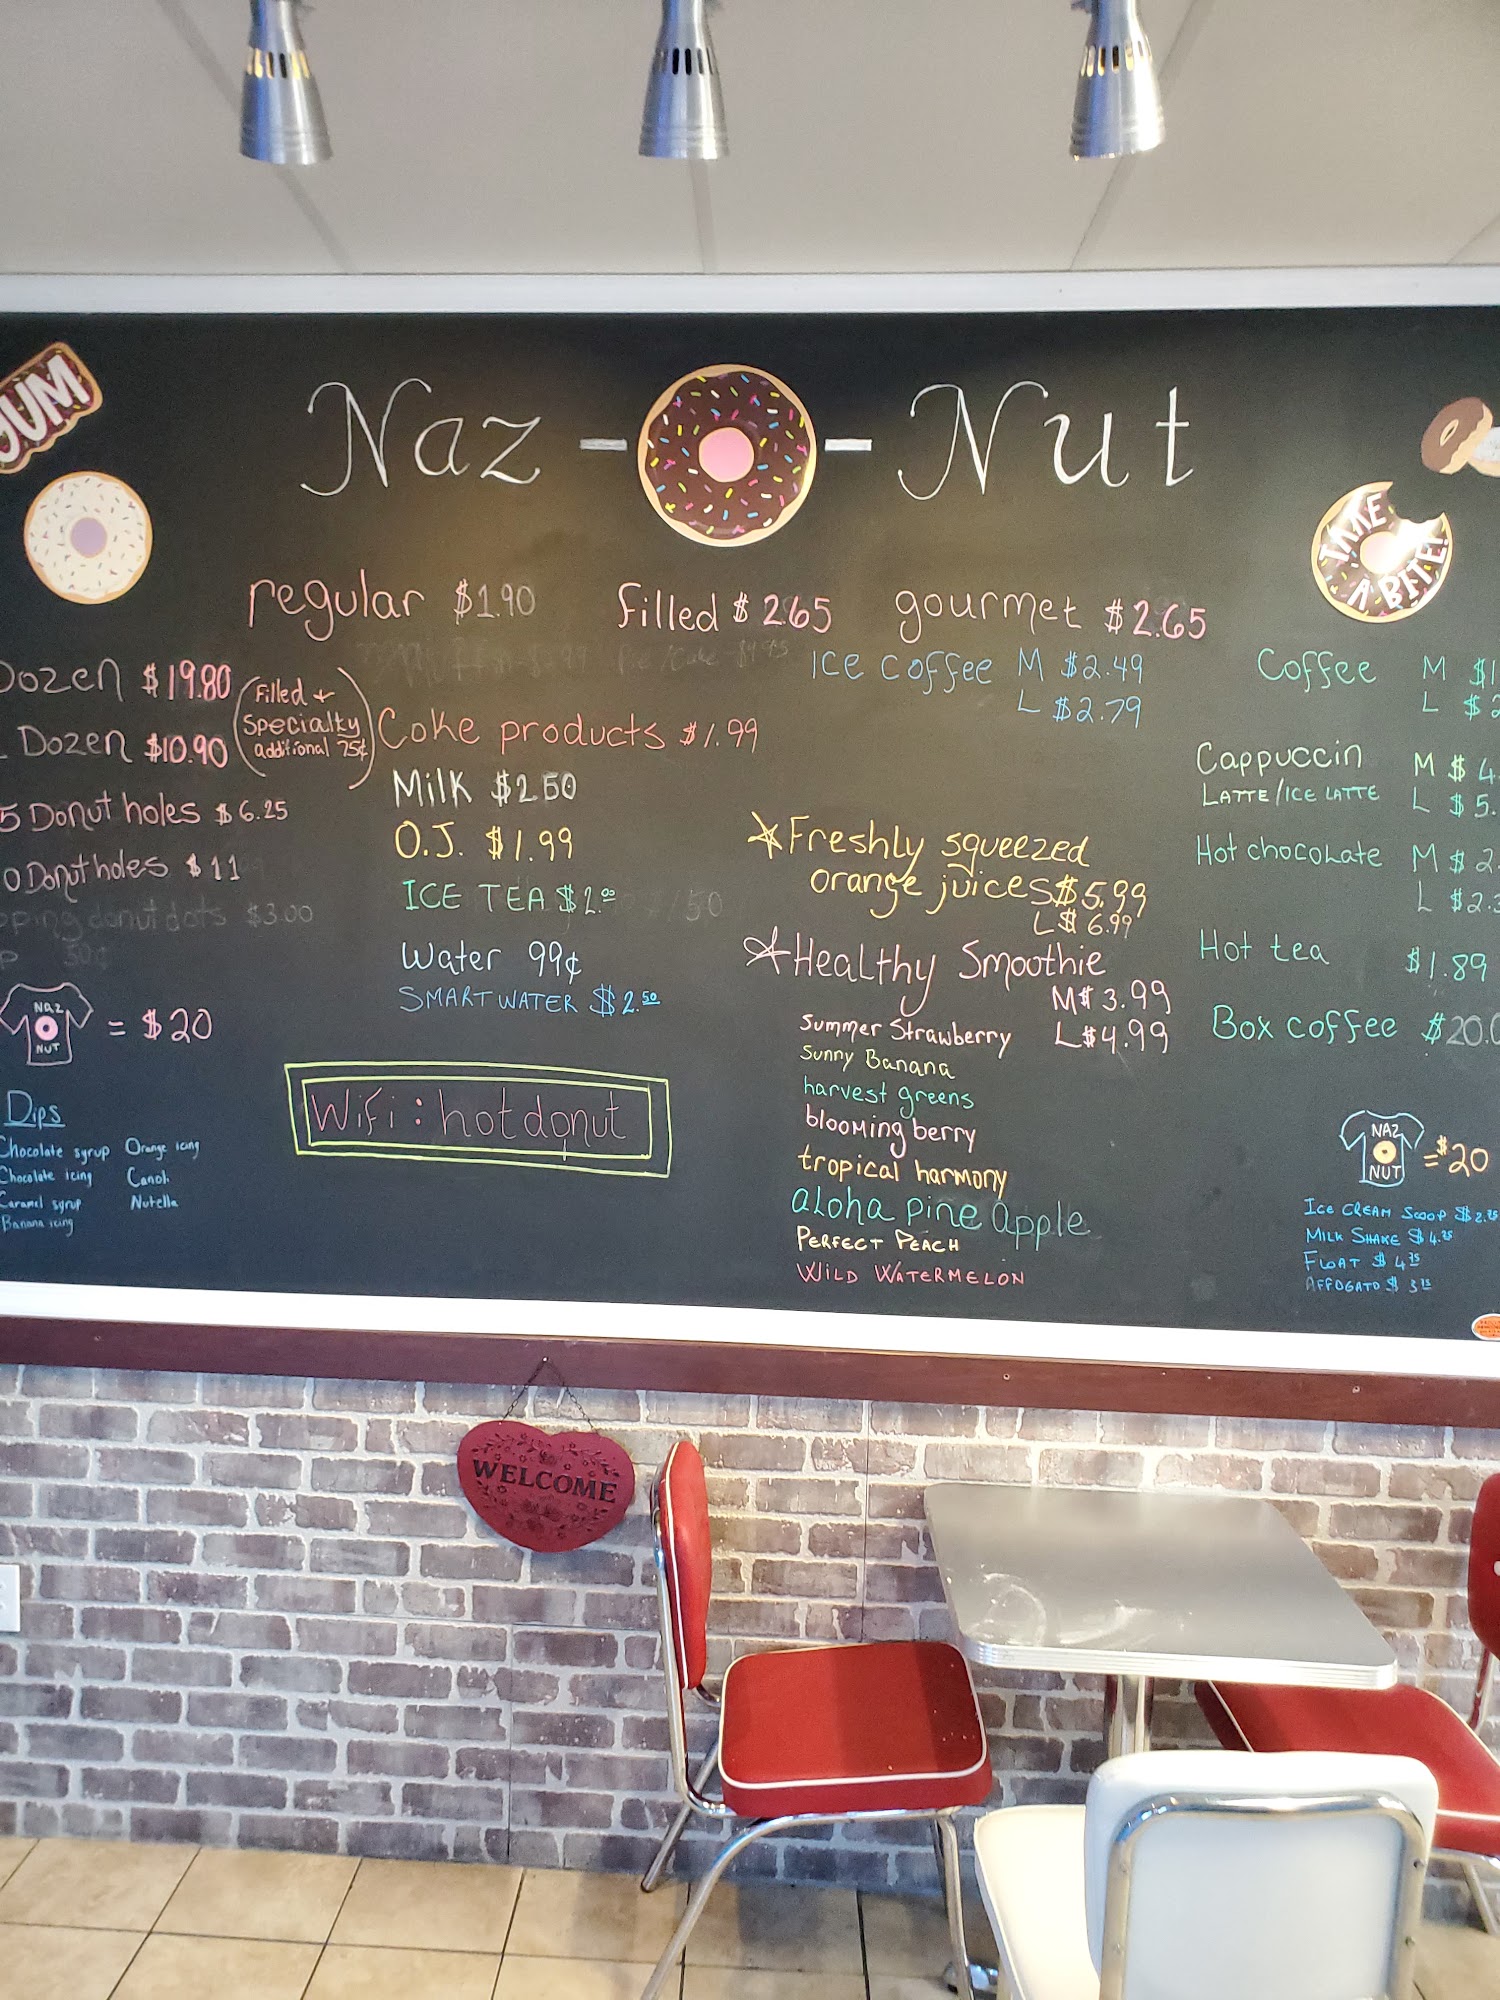 YUM
Naz - - Nut
TAKE
A BITE!
regular $1.90
filled $2.65
gourmet $2.65
Dozen $19.80
Dozen $10.90
(Filled +
Specialty
additional 75¢)
5 Donut holes $6.25
0 Donut holes $11
pping donut dots $3.00
P 50¢
NAZ
NUT
= $20
Dips
Chocolate syrup
Chocolate icing
Caramel syrup
Banana icing
Orange icing
Nutella
Coke products $1.99
Milk $2.50
O.J. $1.99
ICE TEA $2.00
Water 99¢
SMART WATER $2.50
WiFi: hotdonut
Ice coffee M $2.49
L $2.79
Freshly squeezed
orange juices $5.99
L $6.99
Healthy Smoothie
M $3.99
L $4.99
Summer Strawberry
Sunny Banana
harvest greens
blooming berry
tropical harmony
aloha pine apple
PERFECT PEACH
WILD WATERMELON
Coffee M $1
L $2
Cappuccin M $4.
LATTE/ICE LATTE L $5.
Hot chocolate M $2.
L $2.3
Hot tea $1.89
Box coffee $20.0
NAZ
NUT
= $20
ICE CREAM SCOOP $2.25
MILK SHAKE $4.25
FLOAT $4.75
AFFOGATO $3.15
WELCOME